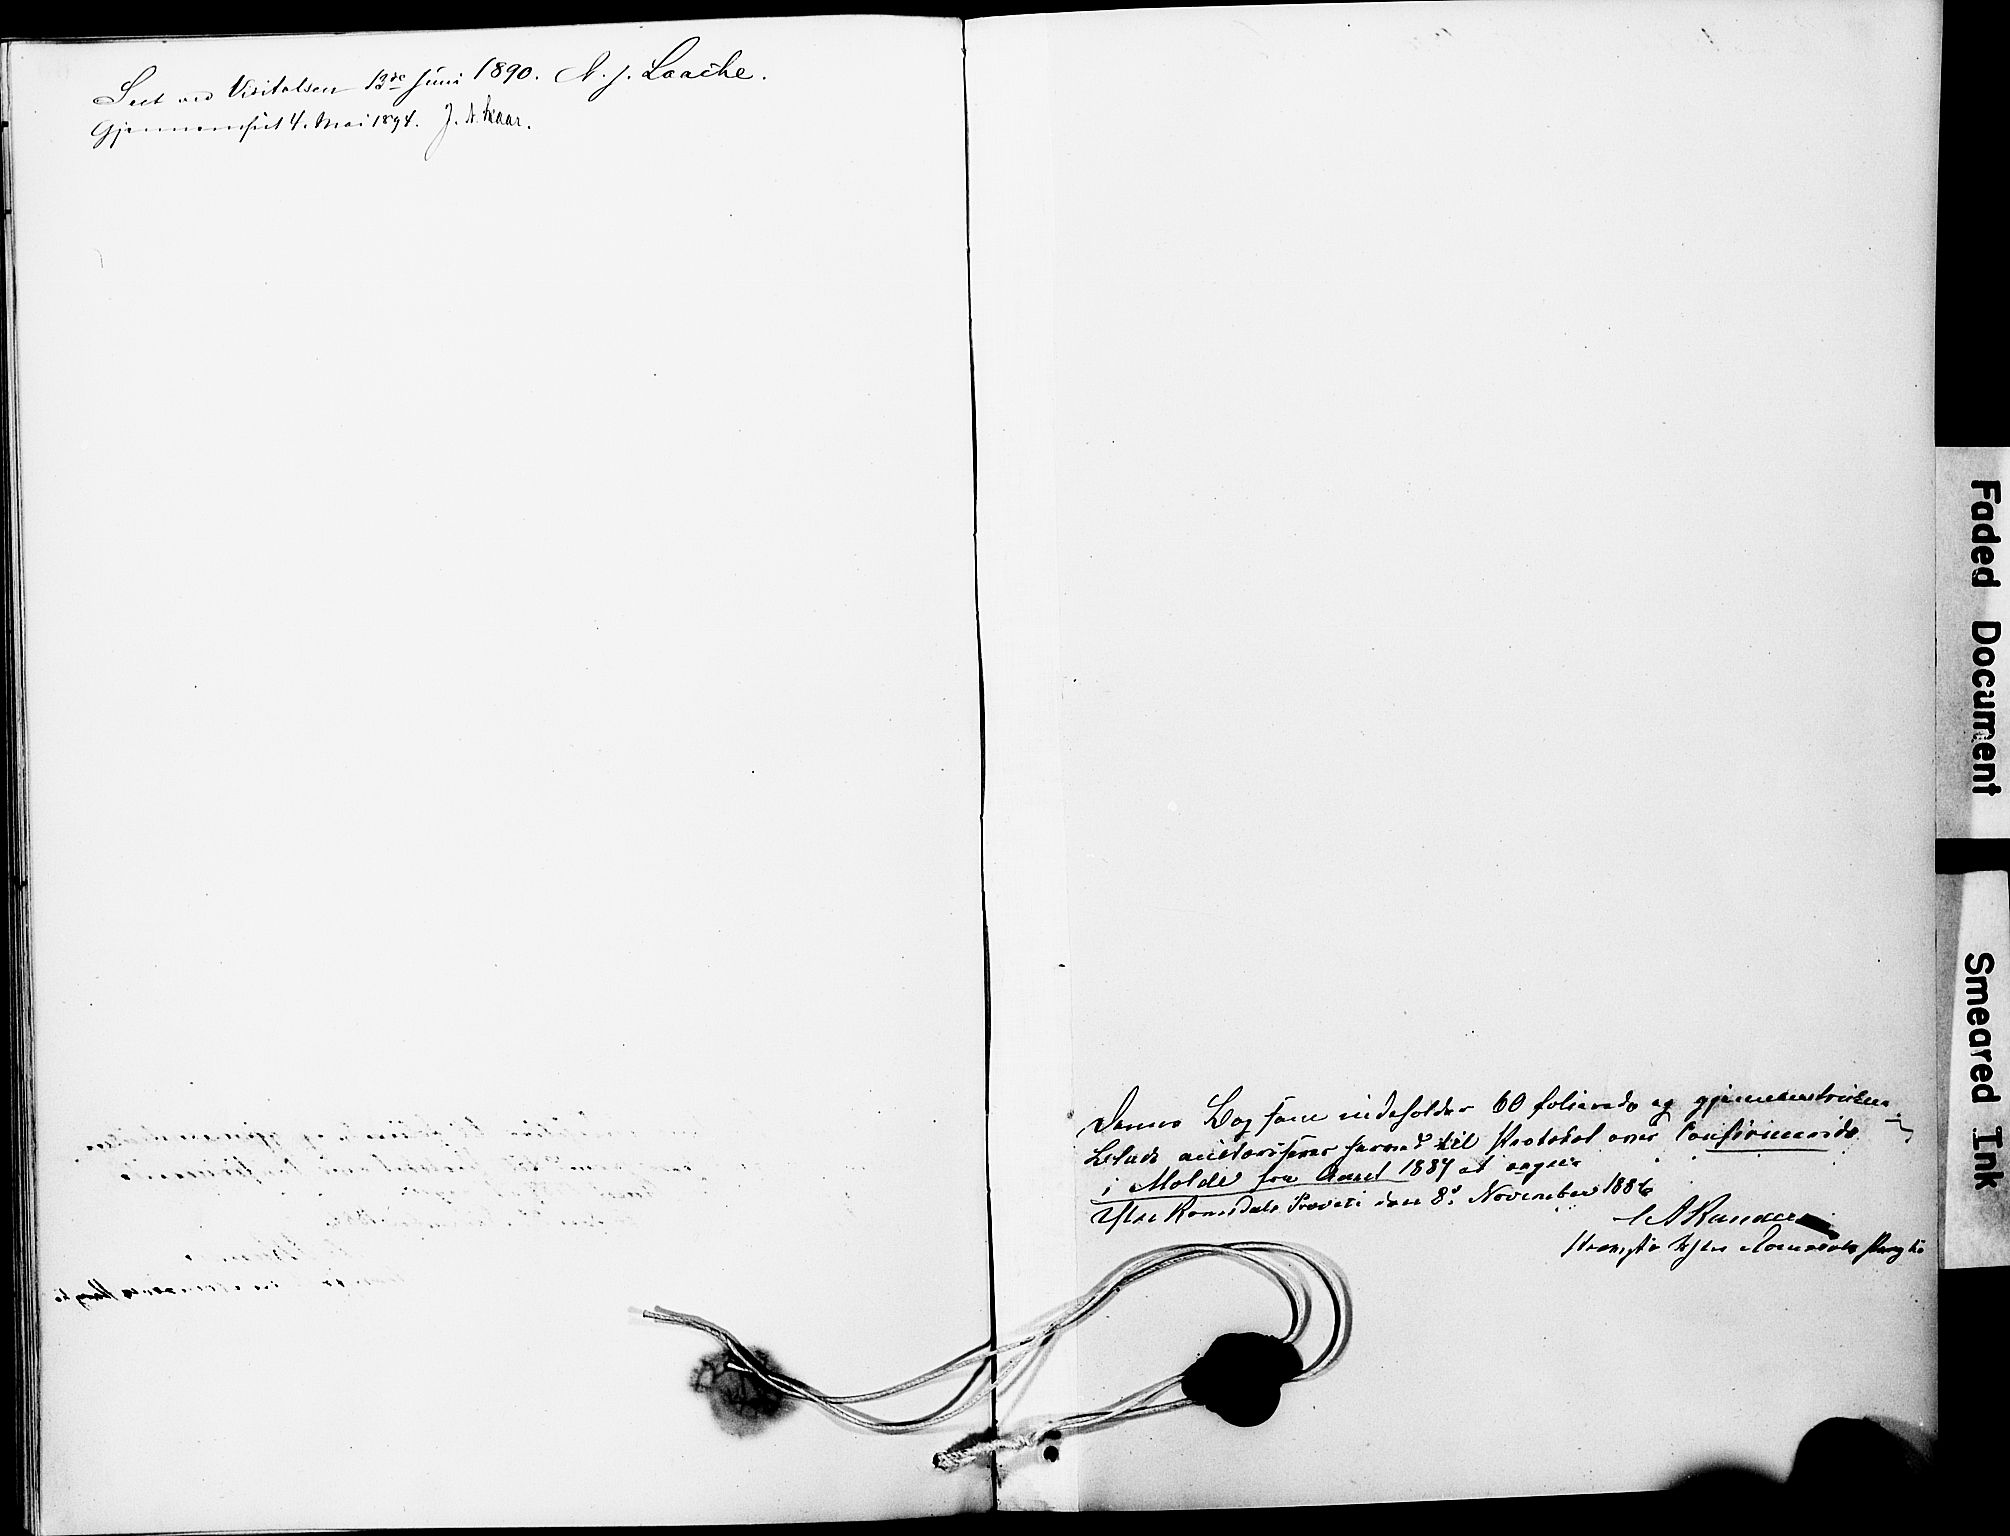 Seet ved Visitatsen 13de Juni 1890. N. J. Laache.
Gjennemseet 4. Mai 1894. J. N. Skaar.
Denne Bog som indeholder 60 folierede og gjennemtrukne
Blade autoriseres herved til Protokol over Confirmerede
i Molde fra Aaret 1887 at regne
Ytre Romsdals Provsti den 8de November 1886
Romsdals
Faded Document
Smeared Ink